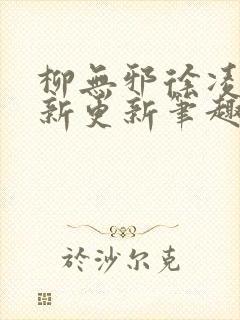 柳無邪徐凌
新更新筆趣
於沙尔克